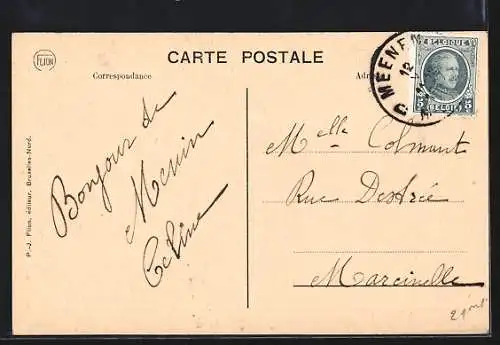 FLION
CARTE POSTALE
Correspondance
MEENEN
12
BELGIQUE
5 BELGIË 5
Bonjour de
Menin
Céline
Melle Colmant
Rue Destrée
Marcinelle
P.-J. Flion, éditeur, Bruxelles-Nord.